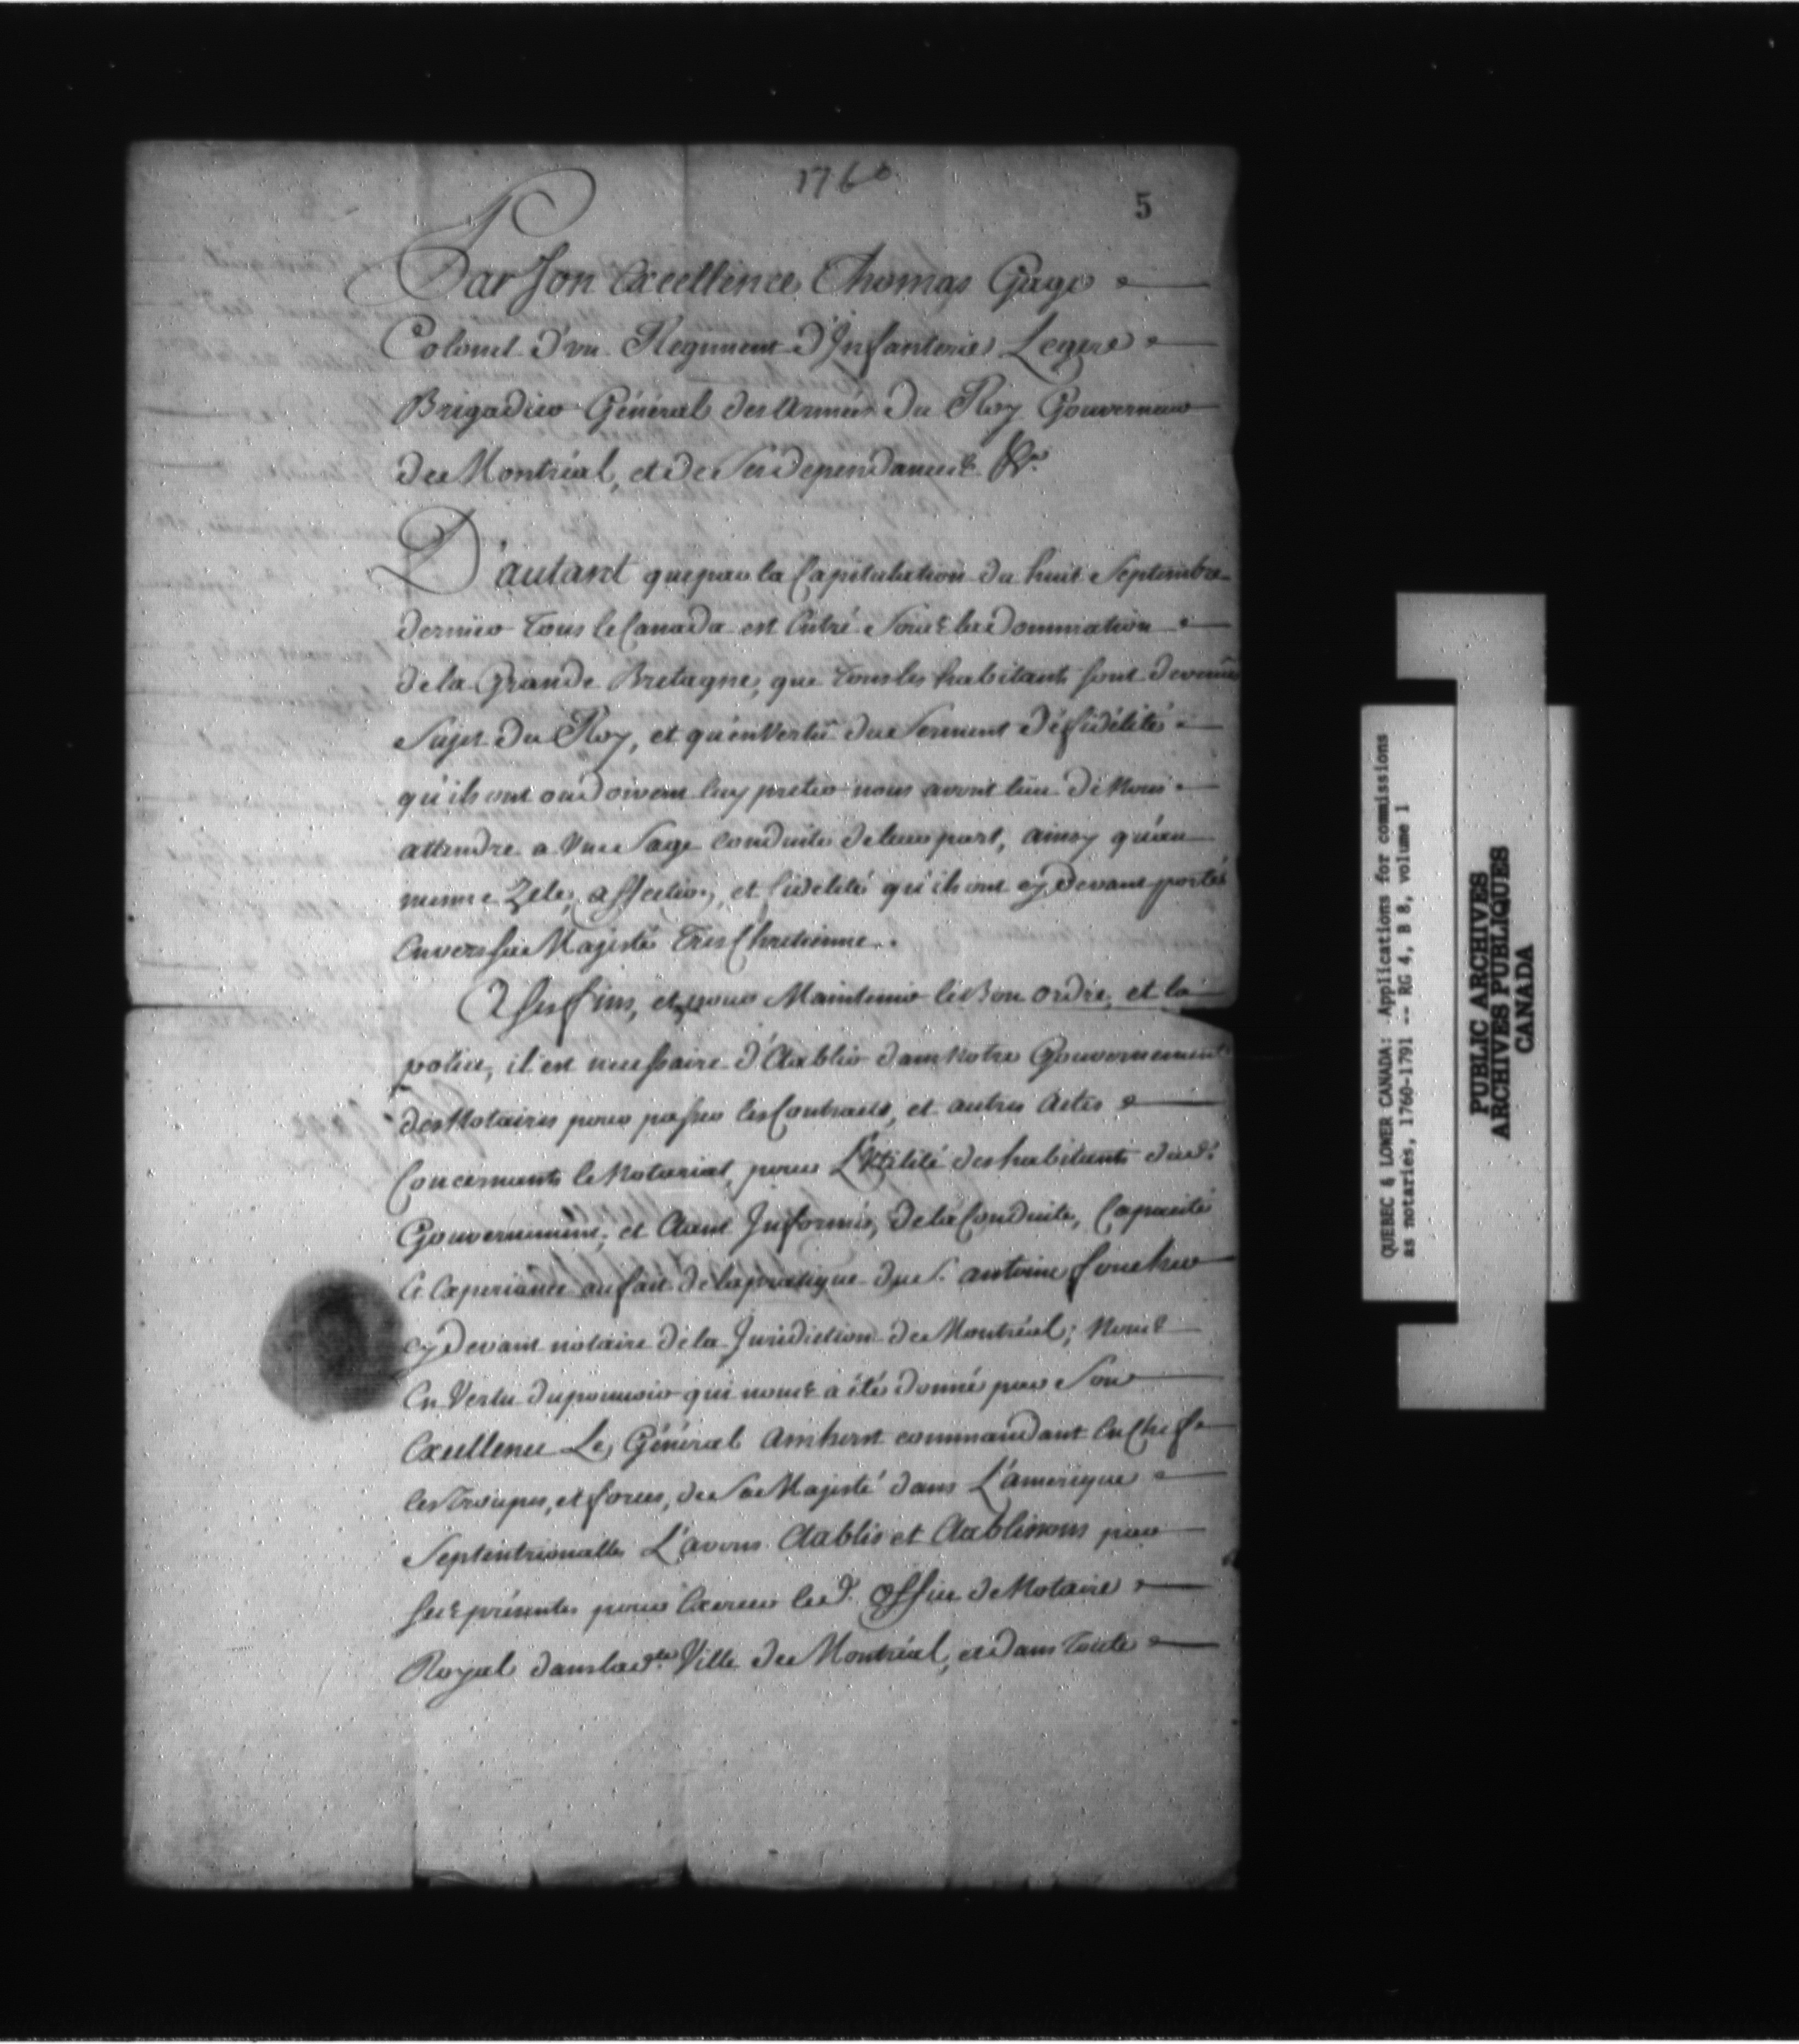 1760
5
Par Son Excellence Thomas Gage
Colonel d'un Regiment d'Infanterie Legere
Brigadier Général des Armées du Roy Gouverneur
de Montréal, et de Ses dependances &a
D'autant que par la Capitulation du huit Septembre
dernier tous le Canada est Entré Sous la domination
de la Grande Bretagne, que tous les habitants sont devenus
Sujet du Roy, et qu'en Vertu du Serment de fidélité
qu'ils ont ou doivent luy preter nous avons lieu de Nous
attendre a Une Sage Conduite de leur part, ainsy qu'au
meme Zele, affection, et fidelité qu'ils ont cy devant portés
Envers sa Majesté tres Chretienne.
A ses fins, et pour Maintenir le Bon ordre, et la
police, il est necessaire d'Etablir dans Notre Gouvernement
des Notaires pour passer les Contracts, et autres Actes
Concernants le Notariat, pour L'Utilité des habitants dud.
Gouvernement, et Etant Informés, de la Conduite, Capacité
Et Experiance au fait de la pratique du S. antoine foucher
cy devant notaire de la Jurisdiction de Montréal; Nous
En Vertu du pouvoir qui nous à été donné par Son
Excellence Le Général Amherst commandant En Chef
les troupes, et forces, de Sa Majesté dans L'amerique
Septentrionalle L'avons Etablis et Etablissons par
ses présentes pour Exercer led. Office de Notaire
Royal dans lad.te Ville de Montréal, et dans toute
QUEBEC & LOWER CANADA: Applications for commissions
as notaries, 1760-1791 -- RG 4, B 8, volume 1
PUBLIC ARCHIVES
ARCHIVES PUBLIQUES
CANADA